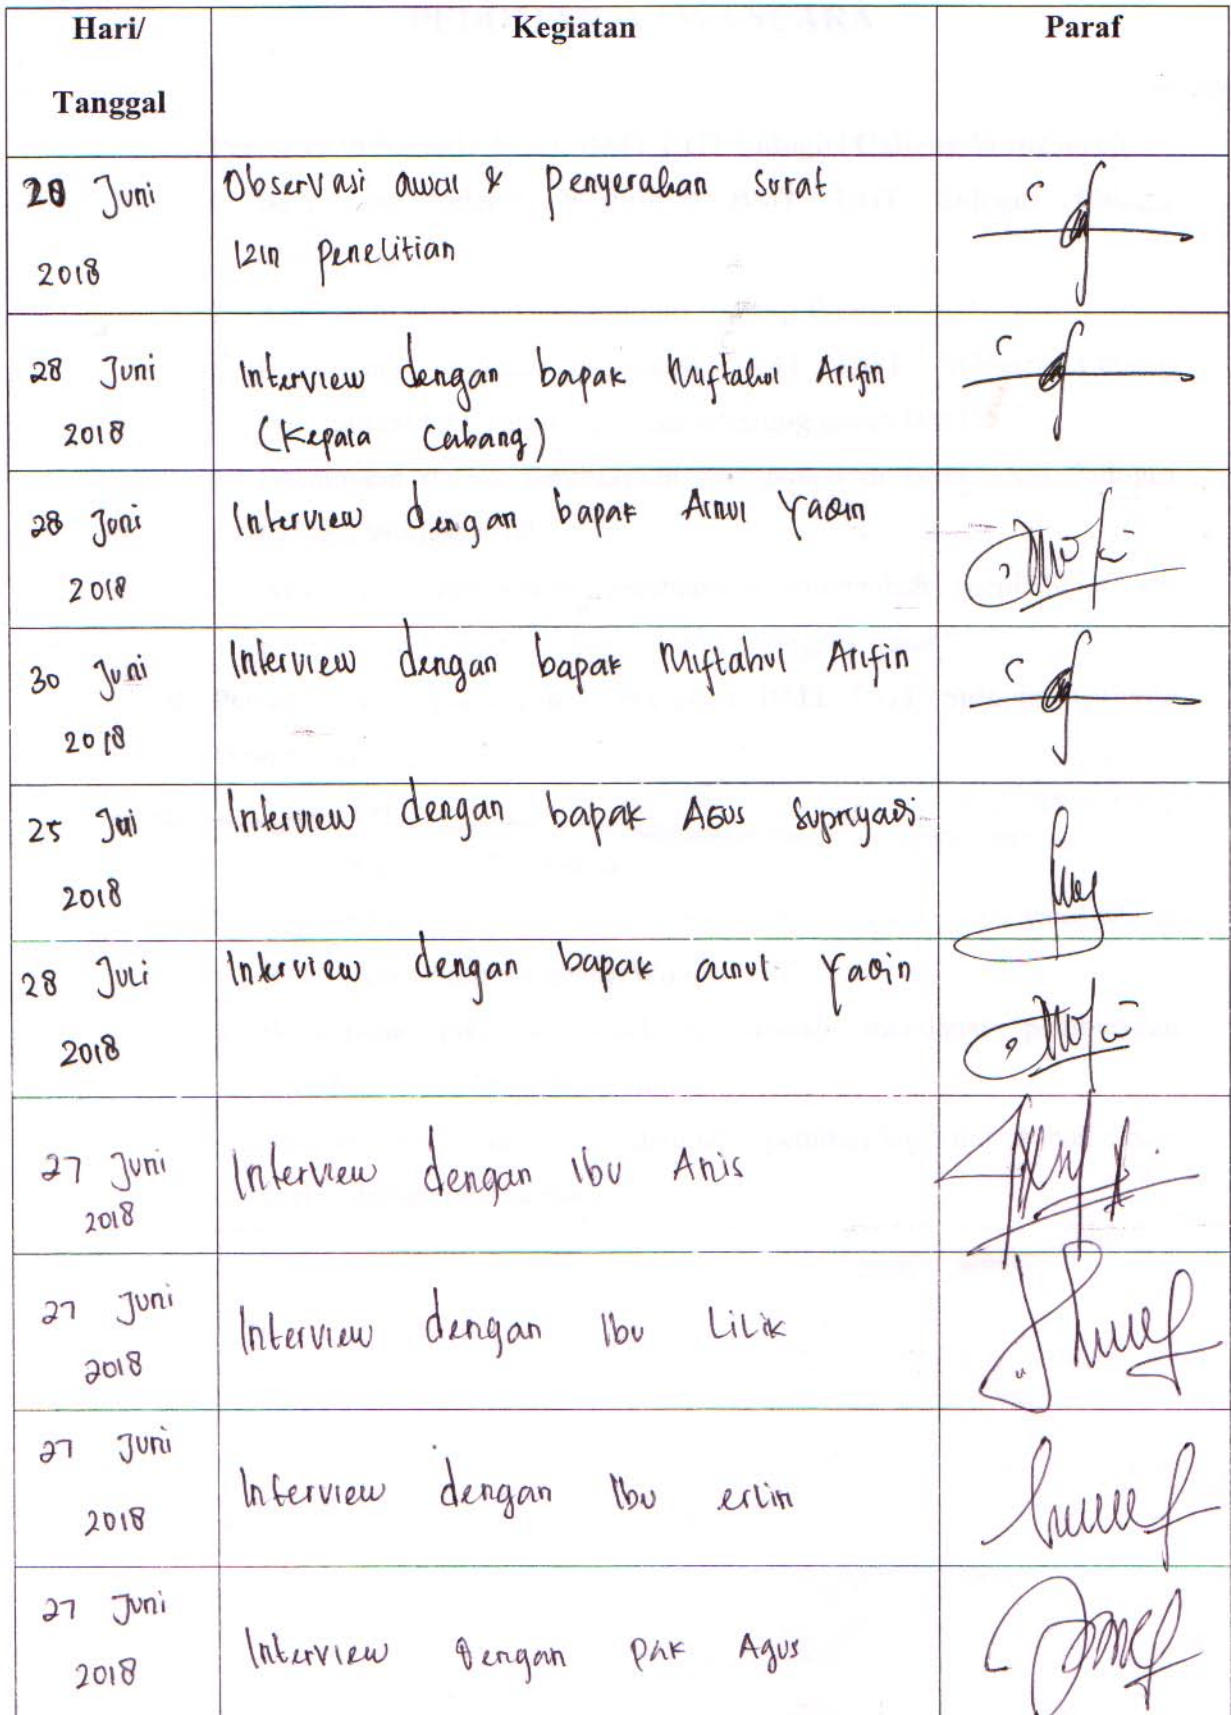 Hari/
Tanggal
Kegiatan
Paraf
20 Juni
2018
Observasi awal & Penyerahan Surat
Izin Penelitian
28 Juni
2018
Interview dengan bapak Miftahul Arifin
(Kepala Cabang)
28 Juni
2018
Interview dengan bapak Ainul Yaqin
30 Juni
2018
Interview dengan bapak Miftahul Arifin
25 Juli
2018
Interview dengan bapak Agus Supriyadi
28 Juli
2018
Interview dengan bapak ainul Yaqin
27 Juni
2018
Interview dengan Ibu Anis
27 Juni
2018
Interview dengan Ibu Lilik
27 Juni
2018
Interview dengan Ibu erlin
27 Juni
2018
Interview dengan pak Agus